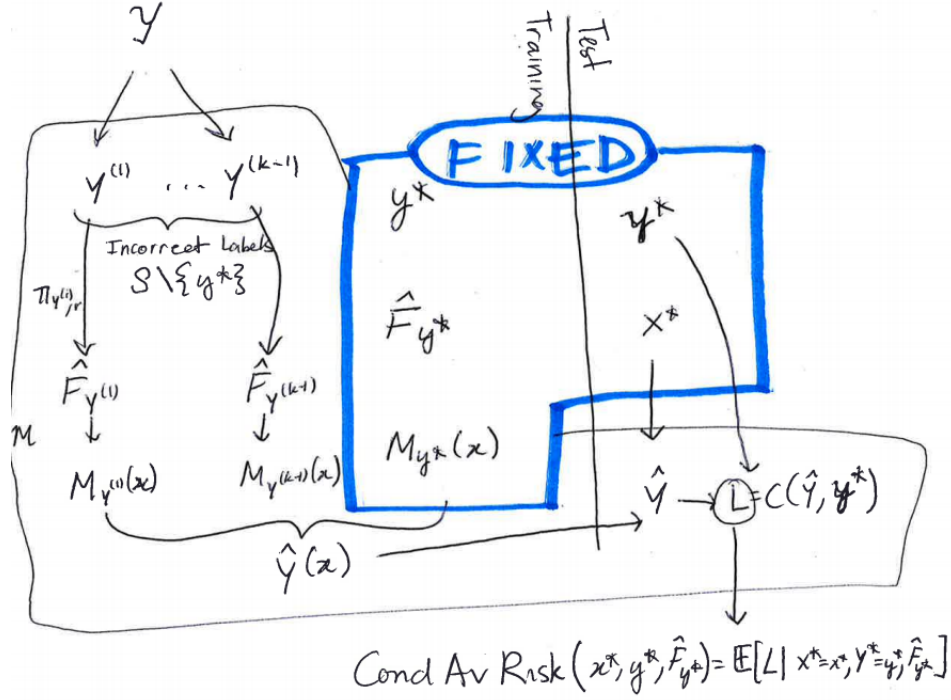 𝒴
Training
Test
FIXED
Y⁽¹⁾ ... Y⁽ᵏ⁻¹⁾
y*
y*
Incorrect Labels
S\{y*}
Π_{Y⁽ⁱ⁾,r}
F̂_{y*}
x*
F̂_{Y⁽¹⁾}
F̂_{Y⁽ᵏ⁻¹⁾}
M
M_{Y⁽¹⁾}(x)
M_{Y⁽ᵏ⁻¹⁾}(x)
M_{y*}(x)
Ŷ
L = C(Ŷ, y*)
Ŷ(x)
Cond Av Risk(x*, y*, F̂_{y*}) = 𝔼[L| X*=x*, Y*=y*, F̂_{y*}]